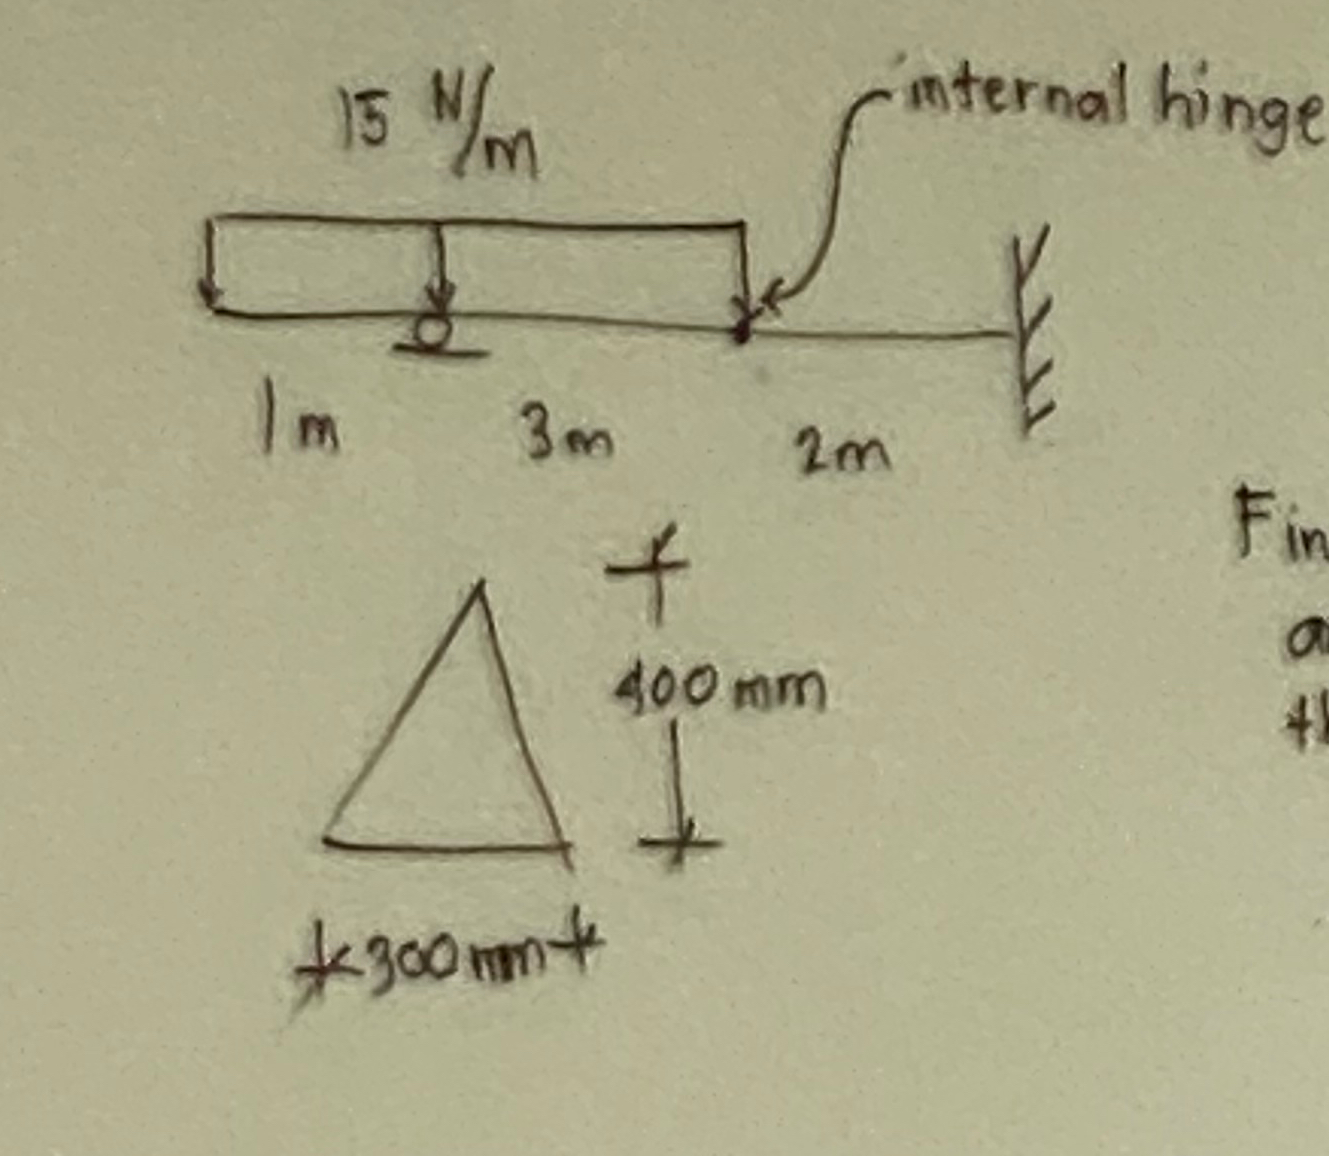 15 N/m
internal hinge
1m
3m
2m
400 mm
300 mm